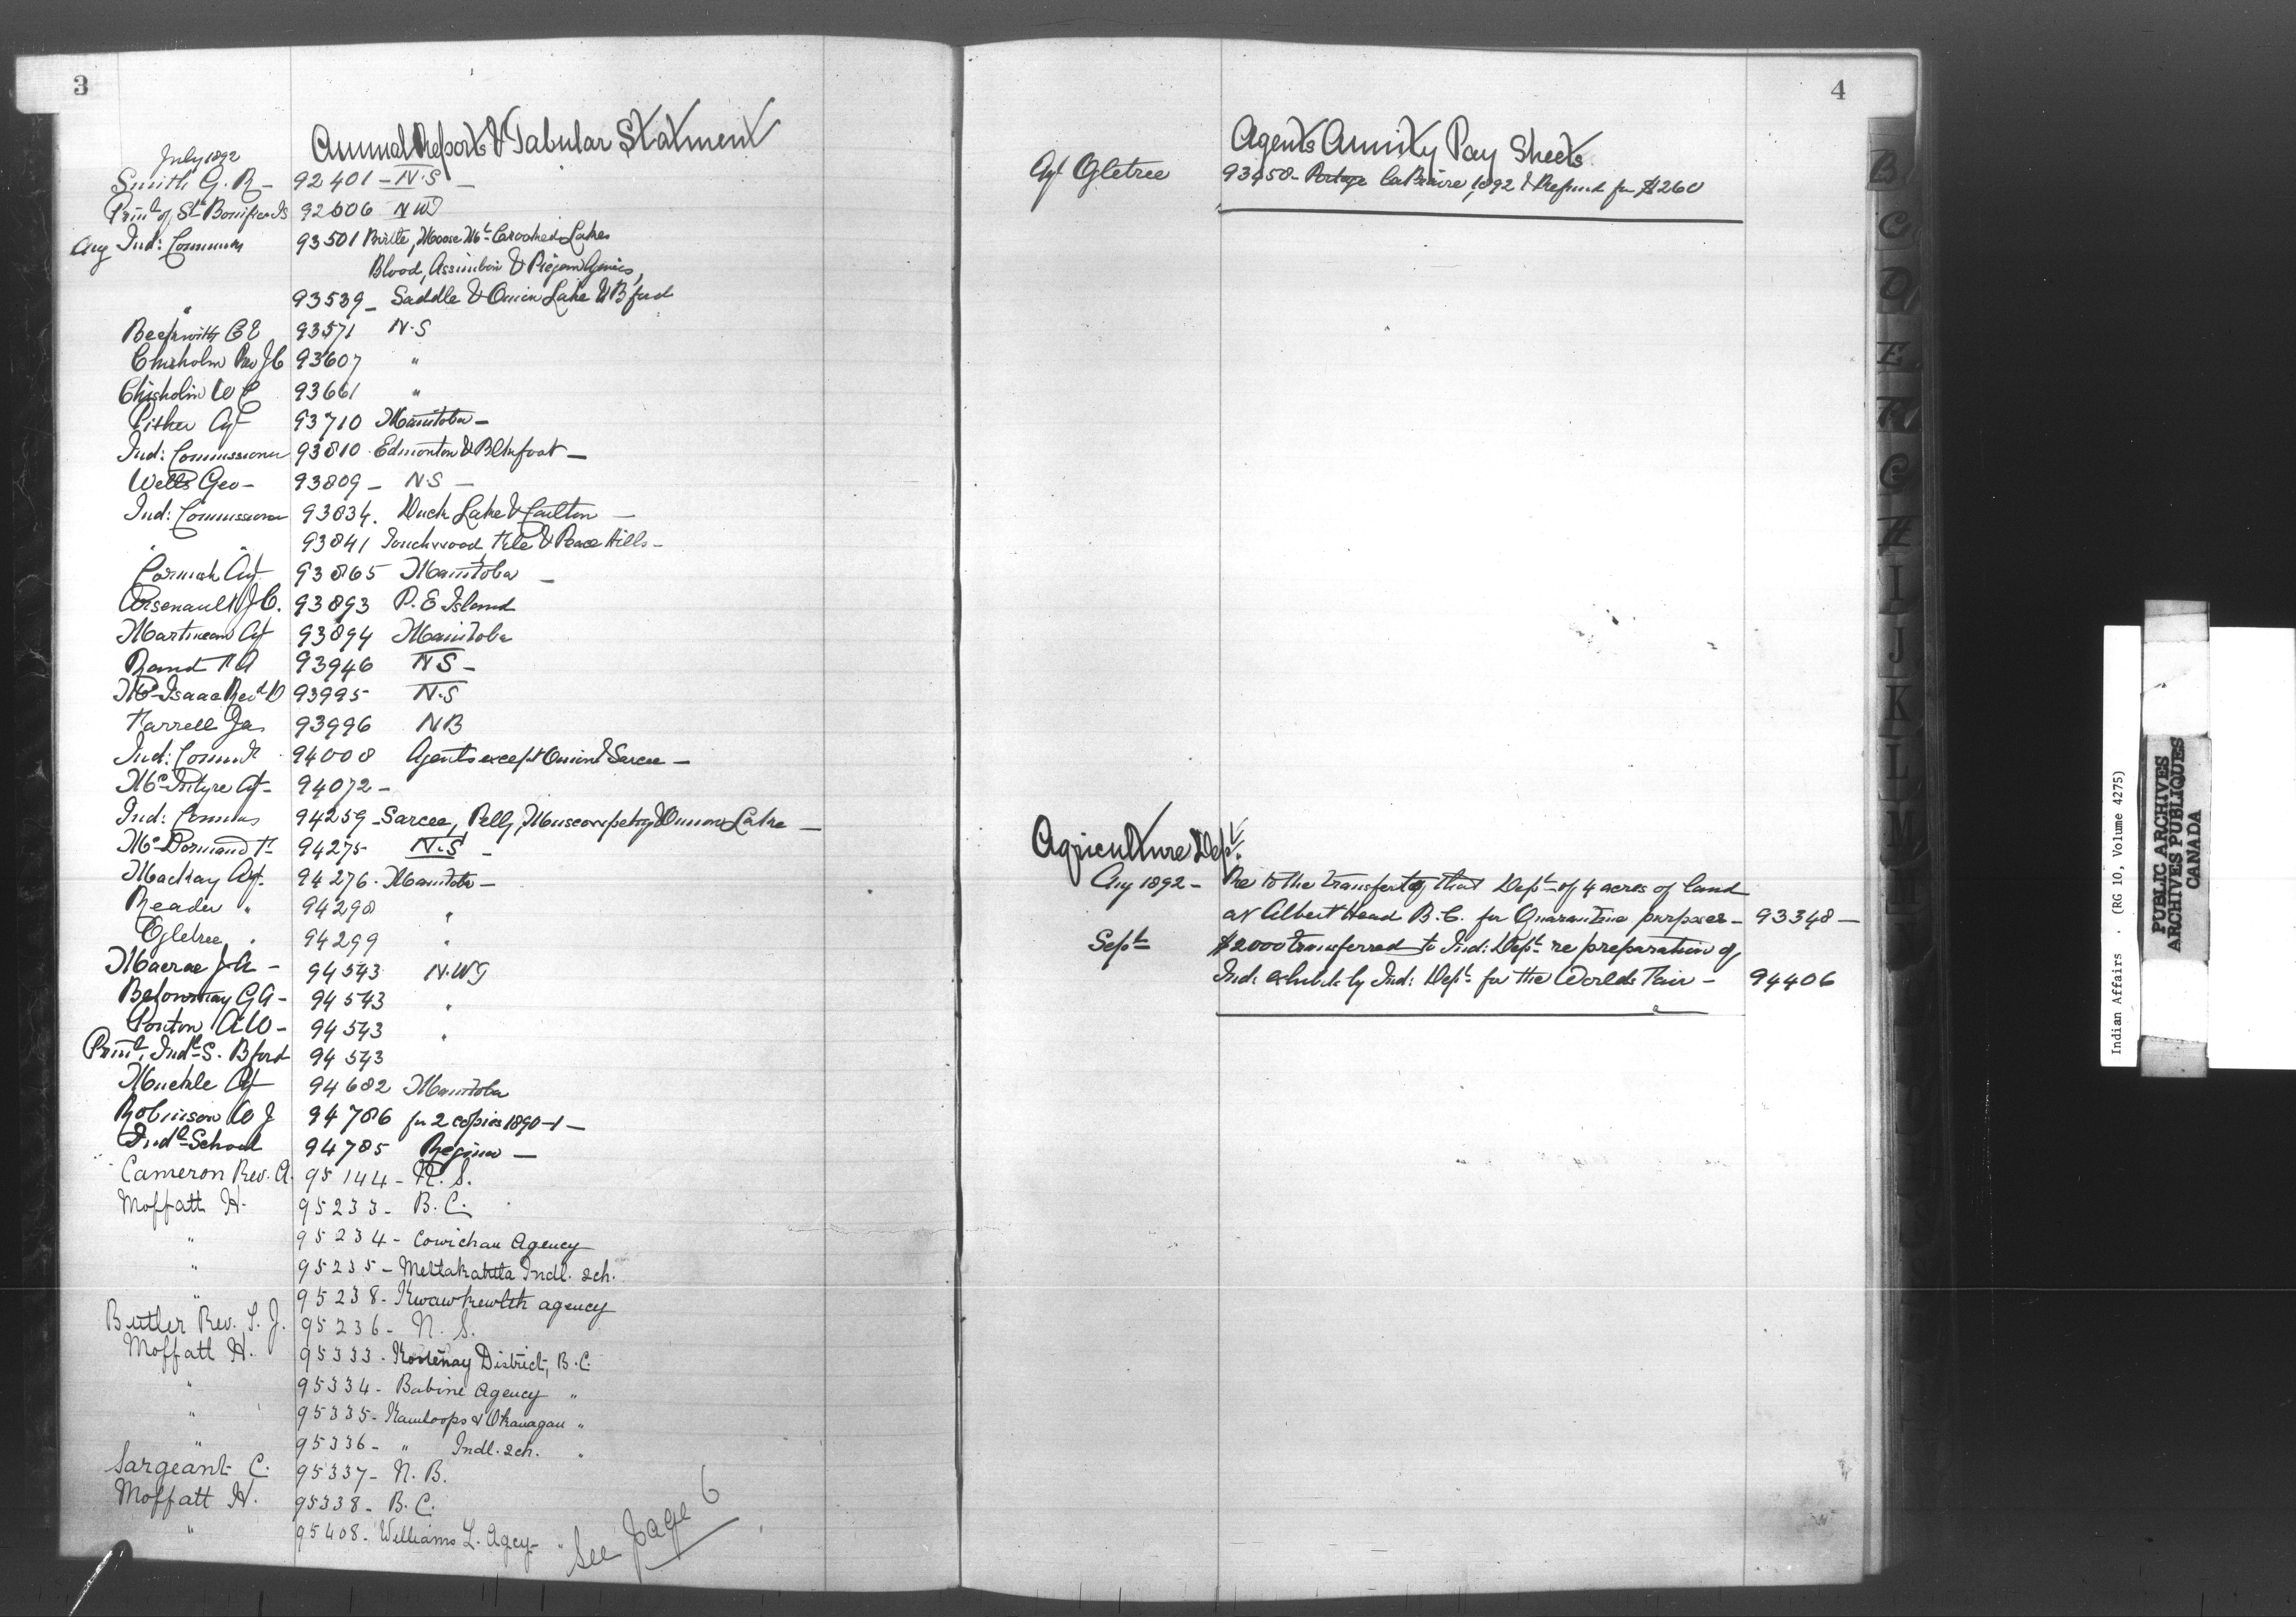 3
Annual Reports & Tabular Statment
July 1892
Smith G. R - 92401 - N.S -
Prin'l of St Boniface Is 92606 NWT
Aug Ind: Commis 93501 Birtle, Moose Mt Crooked Lakes
Blood, Assiniboin & Piegan Agencies,
" 93539 - Saddle & Onion Lake & B'ford
Beckwith C E 93571 N.S
Chisholm Rev J C 93607 "
Chisholm W C 93661 "
Pither Agt 93710 Manitoba -
Ind: Commissioner 93810 - Edmonton & Blkfoot -
Wells Geo - 93809 - N.S -
Ind: Commissioner 93834. Duck Lake & Carlton -
" " 93841 Touchwood, File & Peace Hills -
Cormack Agt. 93865 Manitoba -
Arsenault J C. 93893 P. E Island
Martineau Agt 93894 Manitoba
Rand F A 93946 N S -
Mc Isaac Revd D 93995 N.S
Farrell Jas 93996 N B
Ind: Commr 94008 Agents except Onion & Sarcee -
Mc Intyre Agt - 94072 -
Ind: Commis 94259 - Sarcee, Pelly, Muscowpetung & Onion Lake -
Mc Dormand F 94275 N.S -
Mackay Agt. 94276 - Manitoba -
Reader " 94298 "
Ogletree " 94299 "
Macrae J A - 94543 N.W T
Betournay G A - 94543 "
Ponton A W - 94543 "
Prin'l, Indl S. B'ford 94543
Muckle Agt 94682 Manitoba
Robinson W J 94786 for 2 copies 1890-1 -
Indl School 94785 Regina -
Cameron Rev. A. 95144 - N. S.
Moffatt H. 95233 - B. C.
" 95234 - Cowichan Agency
" 95235 - Metlakahtla Indl. sch.
" 95238 - Kwawkewlth agency
Butler Rev. T. J. 95236 - N. S.
Moffatt H. 95333 - Kootenay District, B.C.
" 95334 - Babine Agency "
" 95335 - Kamloops & Okanagan "
" 95336 - " Indl. sch. "
Sargeant C. 95337 - N. B.
Moffatt H. 95338 - B. C.
" 95408 - Williams L. Agcy - "
See page 6
4
Agents Annuity Pay Sheets
Agt Ogletree 93450 - Portage la Prairie, 1892 & Refund for $260
Agriculture Dept.
Aug 1892 - Re to the transfer to that Dept of 4 acres of land
at Albert Head B. C. for Quarantine purposes - 93348 -
Sept $2000 transferred to Ind: Dept re preparation of
Ind: exhibits by Ind: Dept for the Worlds Fair - 94406
B
C
D
E
F
G
H
I
J
K
L
M
Indian Affairs . (RG 10, Volume 4275)
PUBLIC ARCHIVES
ARCHIVES PUBLIQUES
CANADA